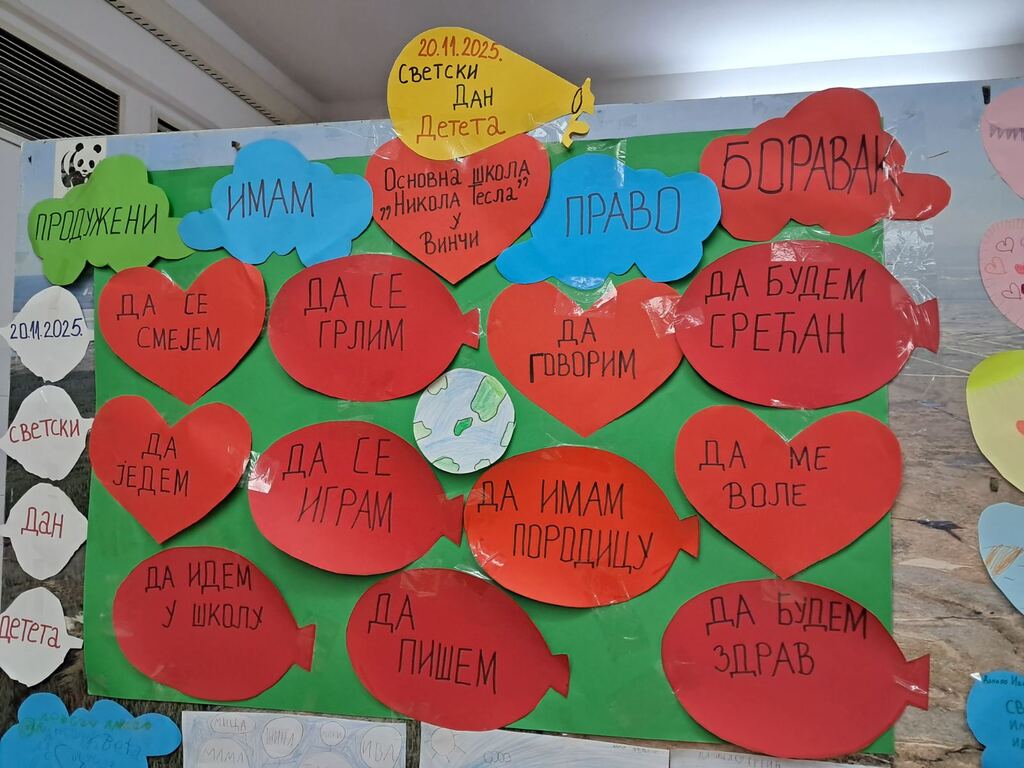 20.11.2025.
Светски
Дан
Детета
ПРОДУЖЕНИ
ИМАМ
Основна школа
„Никола Тесла”
у
Винчи
ПРАВО
БОРАВАК
20.11.2025.
Светски
Дан
Детета
ДА СЕ
СМЕЈЕМ
ДА СЕ
ГРЛИМ
ДА
ГОВОРИМ
ДА БУДЕМ
СРЕЋАН
ДА
ЈЕДЕМ
ДА СЕ
ИГРАМ
ДА ИМАМ
ПОРОДИЦУ
ДА МЕ
ВОЛЕ
ДА ИДЕМ
У ШКОЛУ
ДА
ПИШЕМ
ДА БУДЕМ
ЗДРАВ
МАМА
ИВА